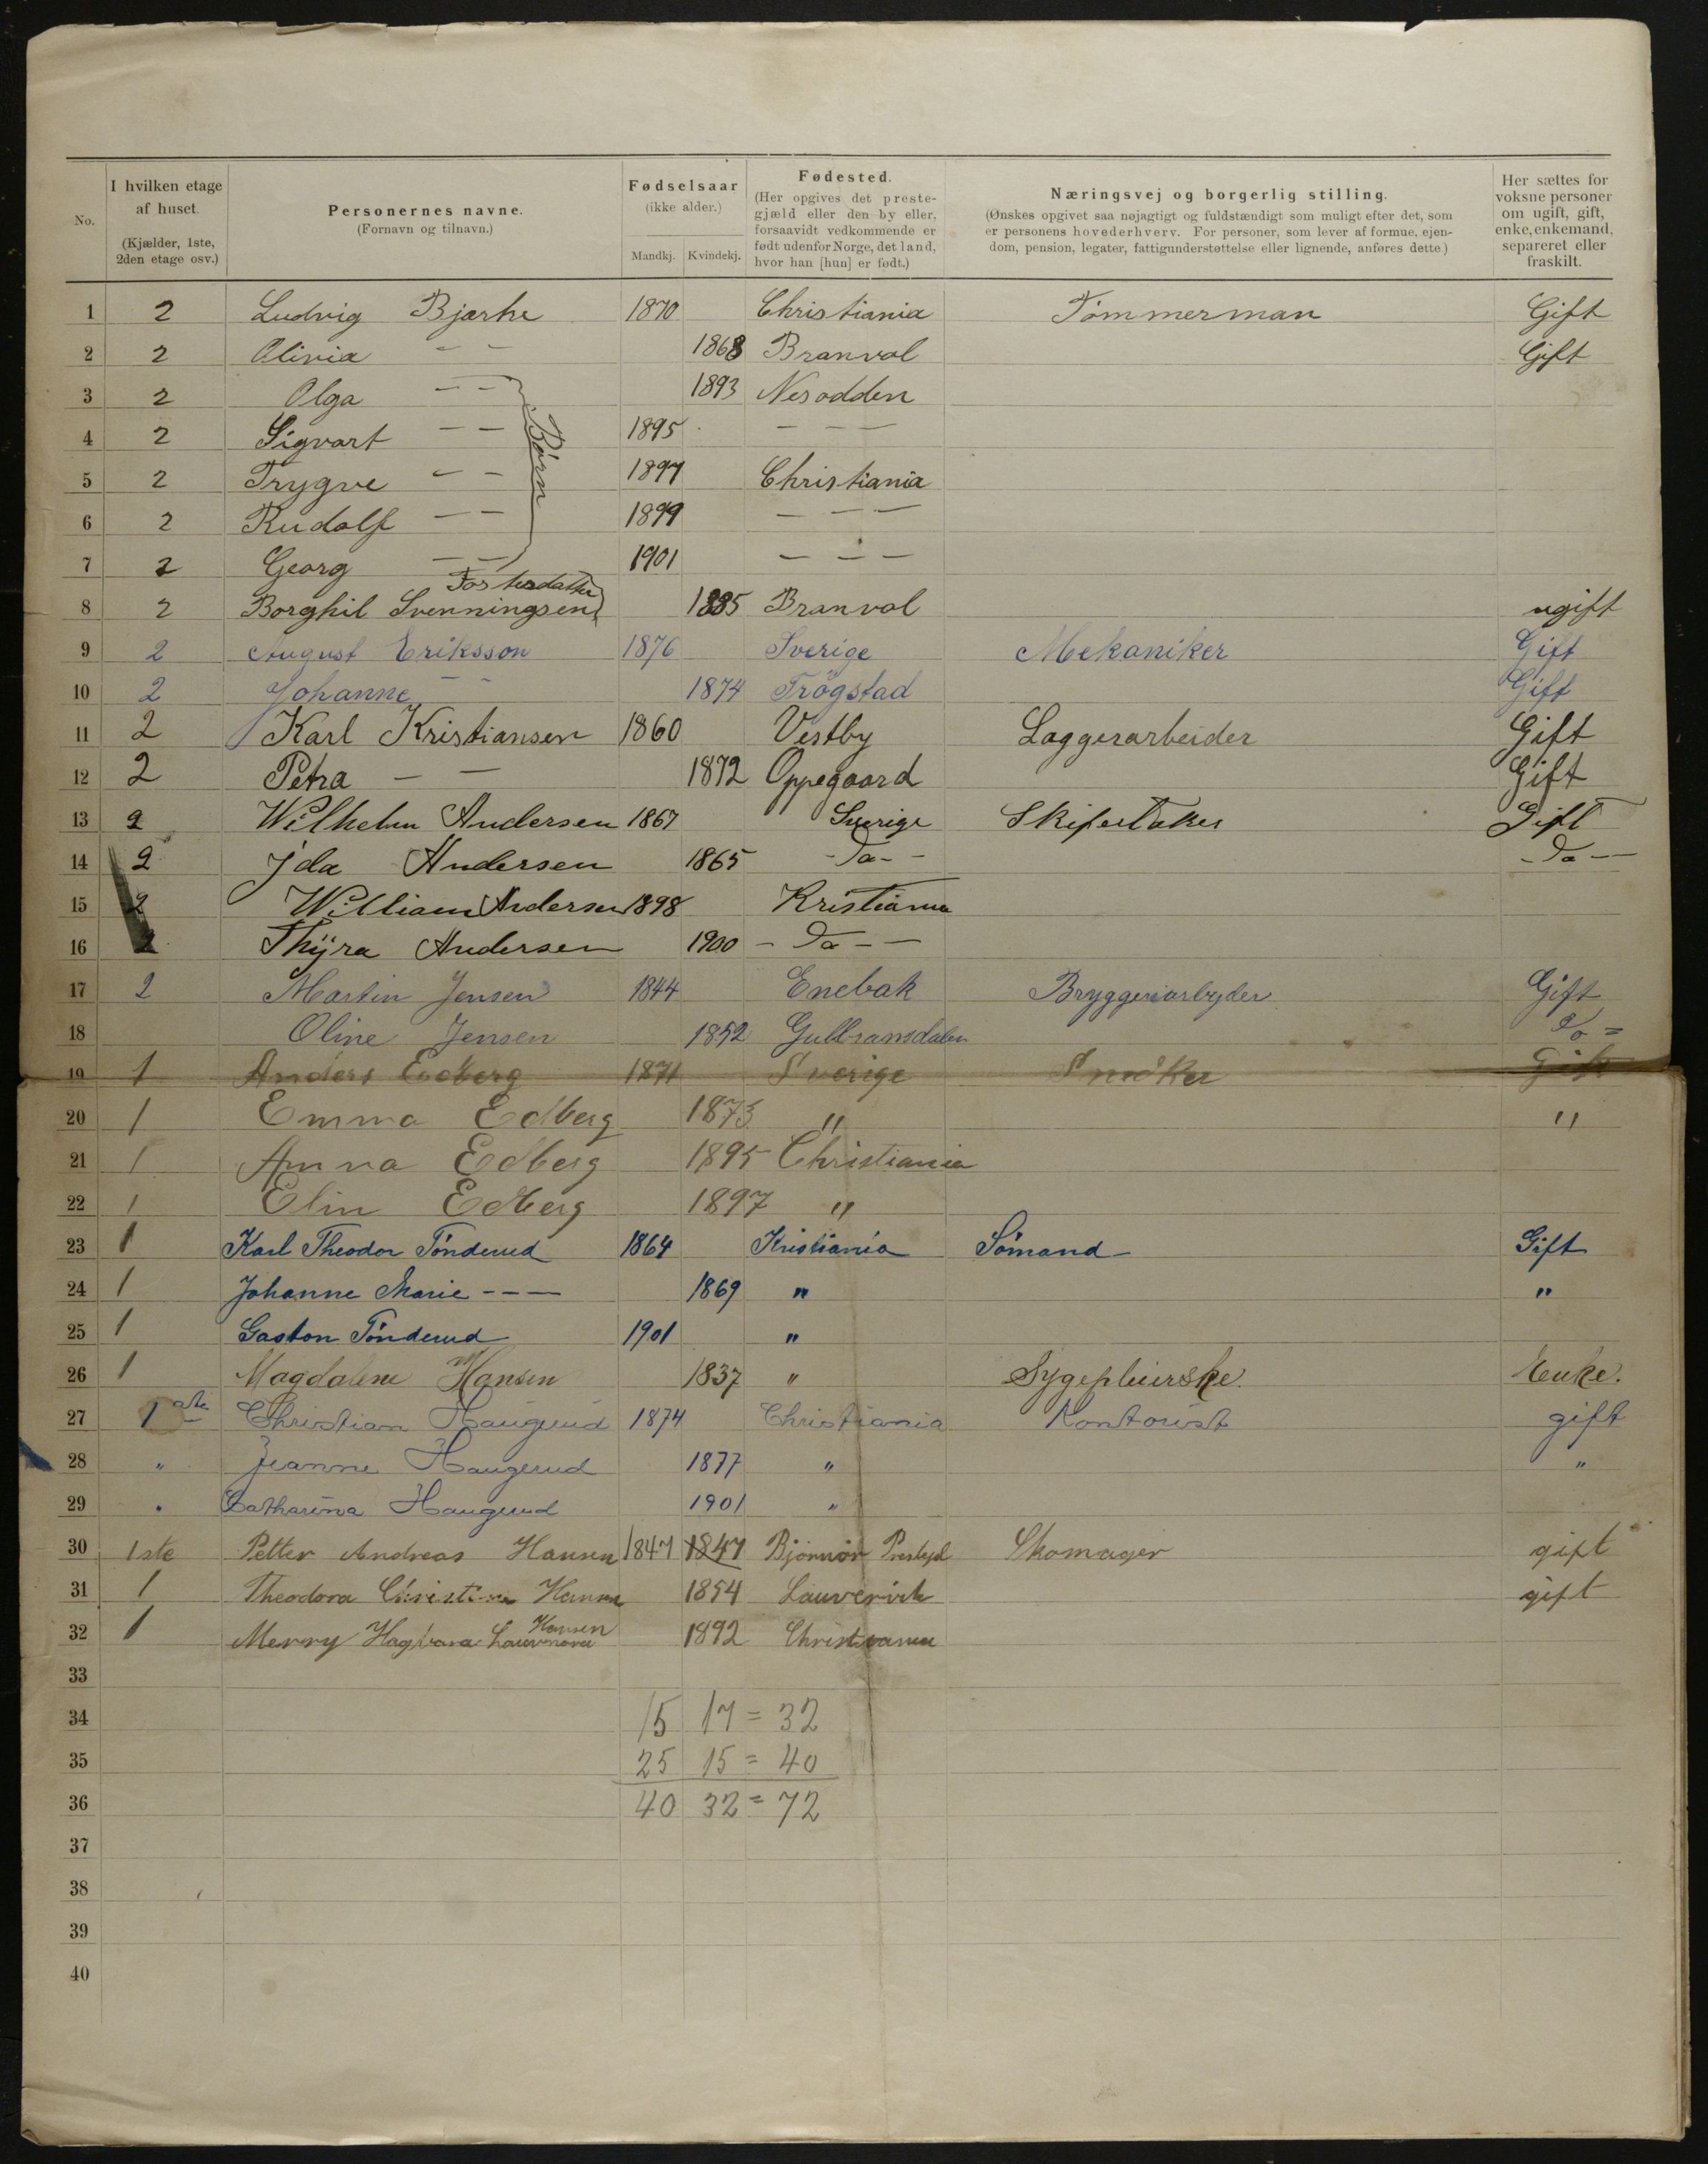 No.
I hvilken etage af huset.
(Kjælder, 1ste, 2den etage osv.)
Personernes navne.
(Fornavn og tilnavn.)
Fødselsaar
(ikke alder.)
Mandkj. Kvindekj.
Fødested.
(Her opgives det prestegjæld eller den by eller, forsaavidt vedkommende er født udenfor Norge, det land, hvor han [hun] er født.)
Næringsvej og borgerlig stilling.
(Ønskes opgivet saa nøjagtigt og fuldstændigt som muligt efter det, som er personens hovederhverv. For personer, som lever af formue, ejendom, pension, legater, fattigunderstøttelse eller lignende, anføres dette)
Her sættes for voksne personer om ugift, gift, enke, enkemand, separeret eller fraskilt.
1 2 Ludvig Bjærke 1870 Christiania Tømmerman Gift
2 2 Olivia - - 1868 Branvol Gift
3 2 Olga - - 1893 Nesodden
4 2 Sigvart - - 1895 - - -
Børn
5 2 Trygve - - 1897 Christiania
6 2 Rudolf - - 1899 - - -
7 2 Georg - - 1901 - - -
Fosterdatter
8 2 Borghil Svenningsen 1885 Branvol ugift
9 2 August Eriksson 1876 Sverige Mekaniker Gift
10 2 Johanne - - 1874 Trøgstad Gift
11 2 Karl Kristiansen 1860 Vestby Laggerarbeider Gift
12 2 Petra - - 1872 Oppegaard Gift
13 2 Wilhelm Andersen 1867 Sverige Skifertaker Gift
14 2 Ida Andersen 1865 - Do - - - Do -
15 2 William Andersen 1898 Kristiania
16 2 Thyra Andersen 1900 - Do - -
17 2 Martin Jensen 1844 Enebak Bryggeriarbeyder Gift
18 Oline Jensen 1852 Gulbransdalen Do =
19 1 Anders Edberg 1871 Sverige Snedker Gift
20 1 Emma Edberg 1873 " "
21 1 Anna Edberg 1895 Christiania
22 1 Elin Edberg 1897 "
23 1 Karl Theodor Tønderud 1864 Kristiania Sømand Gift
24 1 Johanne Marie - - - 1869 " "
25 1 Gaston Tønderud 1901 "
26 1 Magdalene Hansen 1837 " Sygepleierske. Enke.
27 1ste Christian Haugerud 1874 Christiania Kontorist gift
28 " Jeanne Haugerud 1877 " "
29 " Catharina Haugerud 1901 "
30 1ste Petter Andreas Hansen 1847 1847 Bjørnør Prestgd Skomager gift
31 1 Theodora Christine Hansen 1854 Laurvik gift
Hansen
32 1 Merry Hagbara 1892 Christiania
33
34 15 17 = 32
35 25 15 = 40
36 40 32 = 72
37
38
39
40